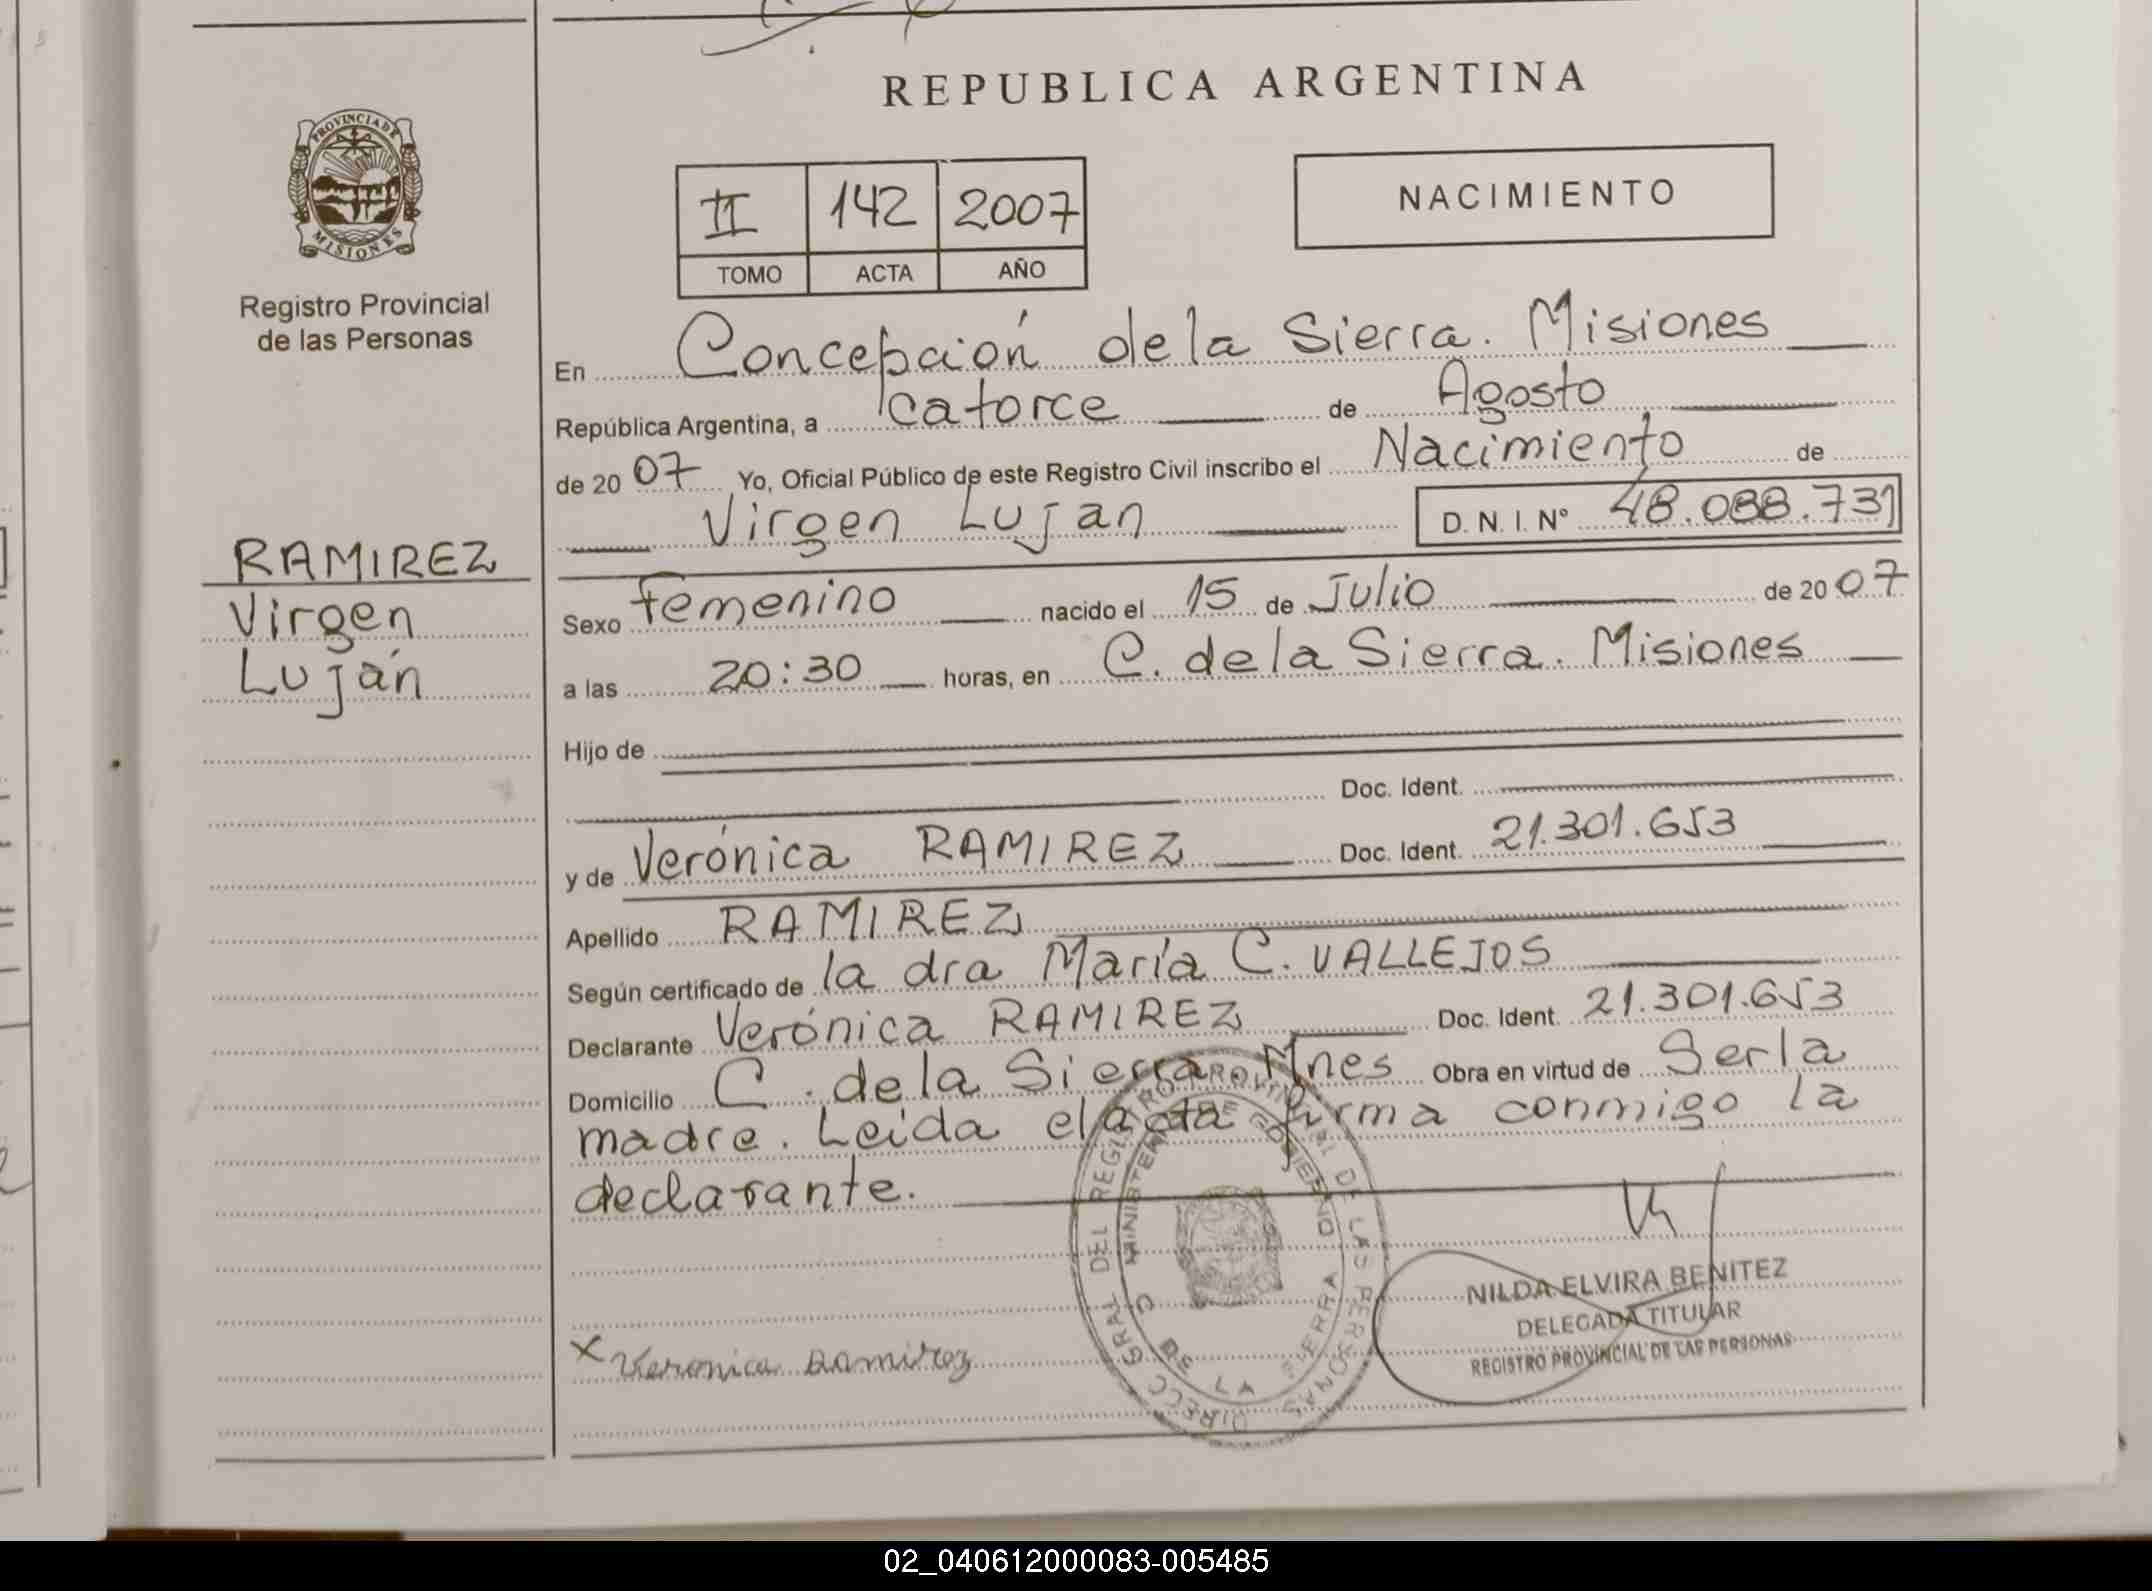 REPUBLICA ARGENTINA
PROVINCIA DE
MISIONES
Registro Provincial
de las Personas
NACIMIENTO
II 142 2007
TOMO ACTA AÑO
En Concepción de la Sierra. Misiones
República Argentina, a catorce de Agosto
de 2007 Yo, Oficial Público de este Registro Civil inscribo el Nacimiento de
Virgen Lujan D. N. I. Nº 48.088.731
RAMIREZ
Virgen
Luján
Sexo Femenino nacido el 15 de Julio de 2007
a las 20:30 horas, en C. de la Sierra. Misiones
Hijo de
Doc. Ident.
y de Verónica RAMIREZ Doc. Ident. 21.301.653
Apellido RAMIREZ
Según certificado de la dra María C. VALLEJOS
Declarante Verónica RAMIREZ Doc. Ident. 21.301.653
Domicilio C. de la Sierra Mnes Obra en virtud de Ser la
madre. Leida el acta firma conmigo la
declarante.
DIRECC GRAL DEL REGISTRO PROVINCIAL DE LAS PERSONAS
MINISTERIO DE GOBIERNO
C DE LA SIERRA
X Veronica Ramirez
NILDA ELVIRA BENITEZ
DELEGADA TITULAR
REGISTRO PROVINCIAL DE LAS PERSONAS
02_040612000083-005485